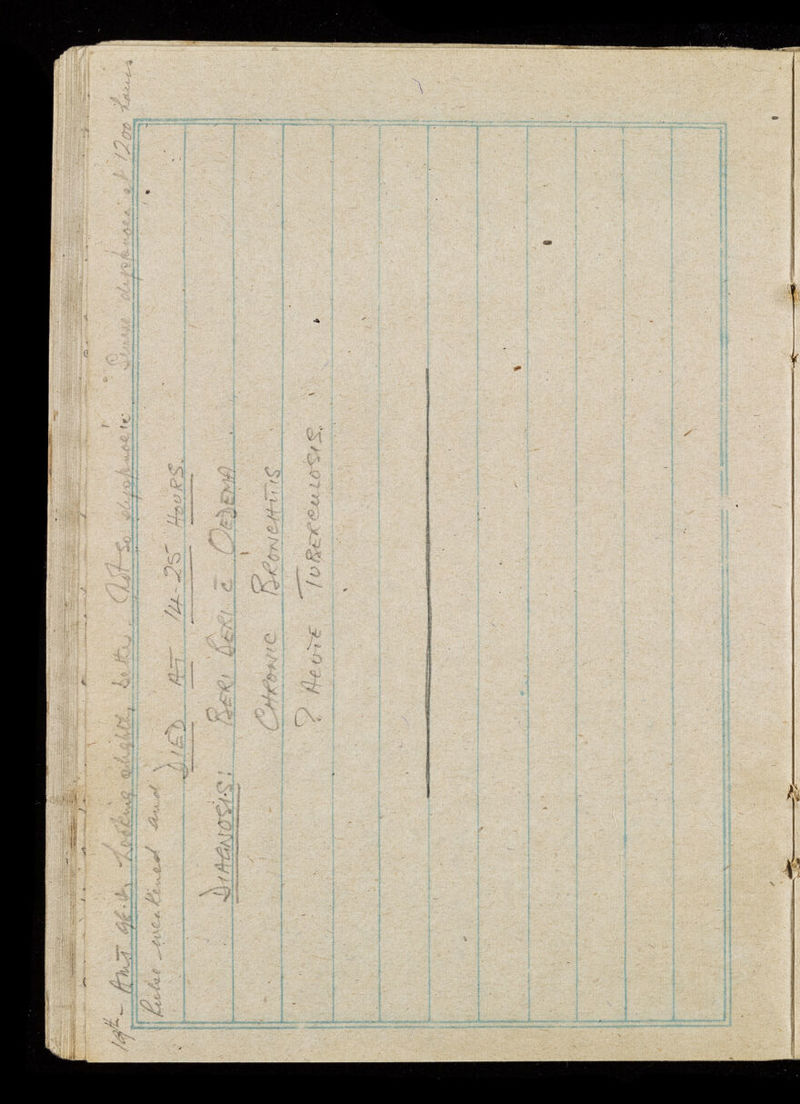 19th - AMT 98.4 Looking slightly better. Not so dyspnoeic. Severe dyspnoea at 1200 hours
Pulse weakened and
DIED AT 14-25 HOURS.
DIAGNOSIS: BERI BERI c̄ OEDEMA.
CHRONIC BRONCHITIS
? ACUTE TUBERCULOSIS.